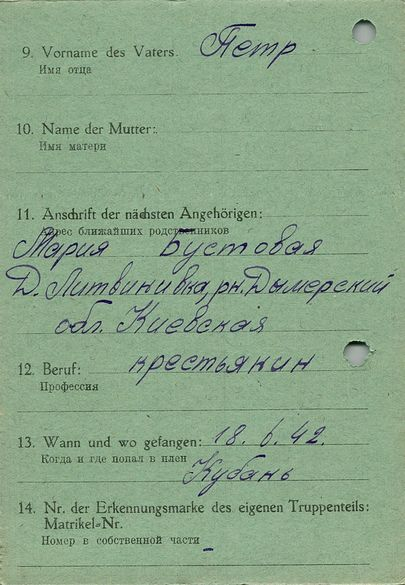 9. Vorname des Vaters. Петр
Имя отца
10. Name der Mutter:
Имя матери
11. Anschrift der nächsten Angehörigen:
Адрес ближайших родственников
Мария Бустовая
Д. Литвинивка, рн. Дымерский
обл. Киевская
12. Beruf: крестьянин
Профессия
13. Wann und wo gefangen: 18. 6. 42.
Когда и где попал в плен
Кубань
14. Nr. der Erkennungsmarke des eigenen Truppenteils:
Matrikel-Nr.
Номер в собственной части -